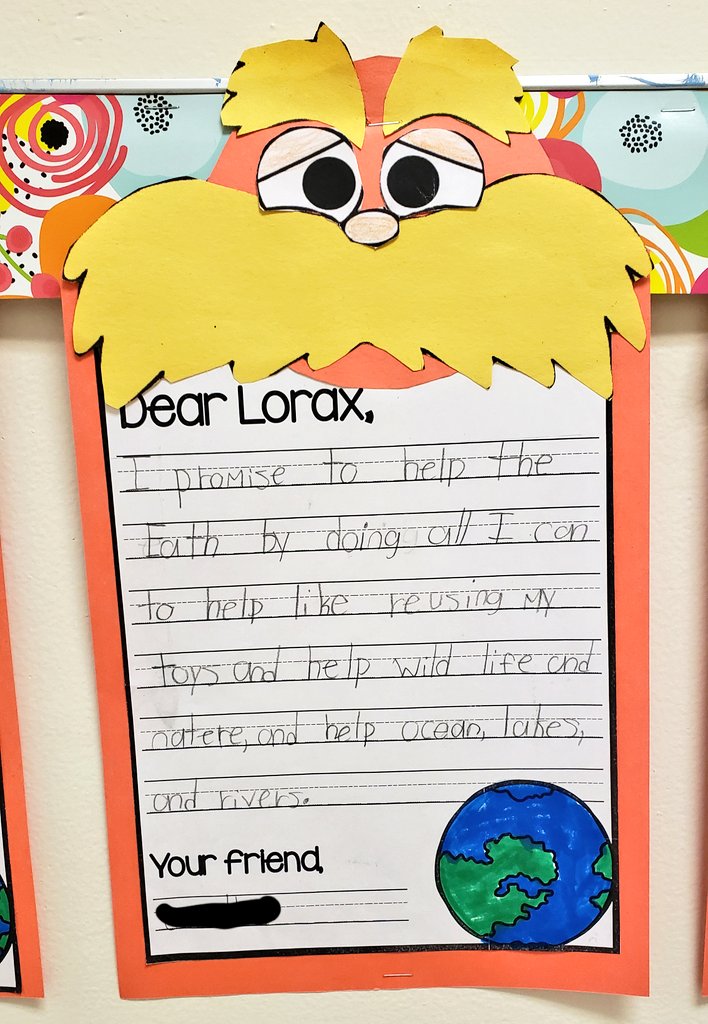 Dear Lorax,
I promise to help the
Earth by doing all I can
to help like reusing my
toys and help wild life and
natere, and help ocean, lakes,
and rivers.
Your friend,